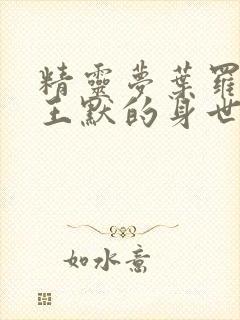 精靈夢葉羅
王默的身世
如水意